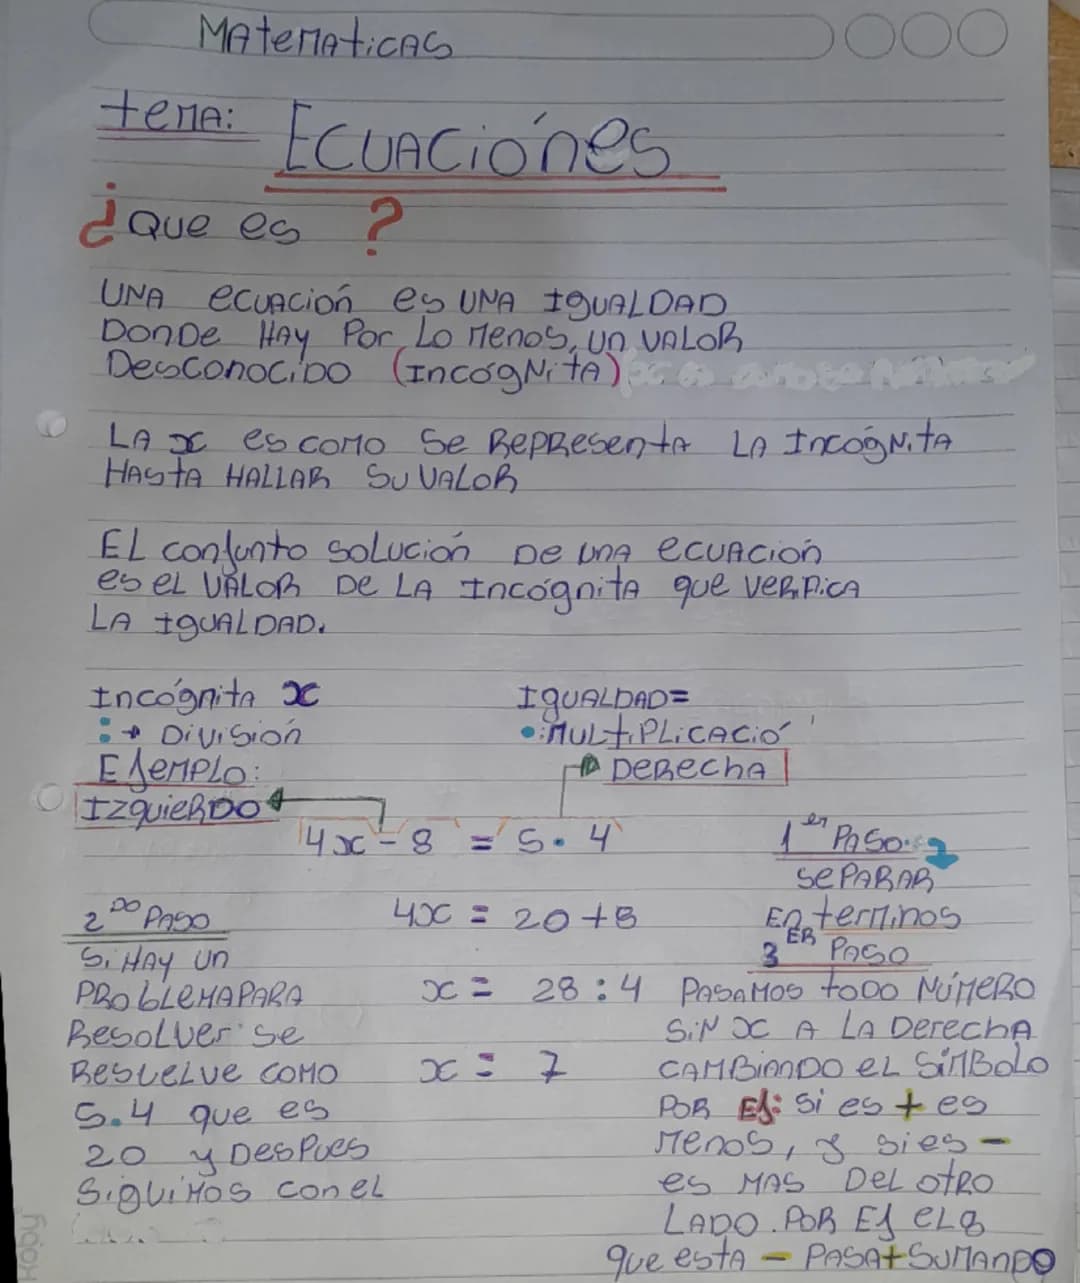 MATEMATICAS
tema: ECUACiónes
¿Que es ?
UNA ecuación es UNA IGUALDAD
DONDE HAY POR Lo Menos, un VALOR
Desconocido (IncógNitA)
LA x es como Se RepResentA LA IncógNitA
HAStA HALLAR SU VALOR
EL conjunto solución De una ecuación
es el VALOR De LA Incógnita que VERifiCA
LA IGUALDAD.
Incógnita x
IGUALDAD=
: → División
•: MULtiPLicació
EJEMPLO:
DeRecha
IZquieRDO
4x - 8 = 5 . 4
1er PASO:
SePARAR
En terminos
2DO PASO
4x = 20 + 8
3ER PASO
Si HAY un
PRoblema PARA
x = 28 : 4
PASAMOS toDO NÚMERO
Resolver se
SiN x A LA DeRechA
Resuelve como
x = 7
CAMBiando el SíMBoLo
5.4 que es
POR EJ: Si es + es
20 y Despues
Menos, y si es -
Siguimos con el
es MAS DeL otRO
LADO. POR EJ eL 8
que esta - PASA + SUMANDO
Roby